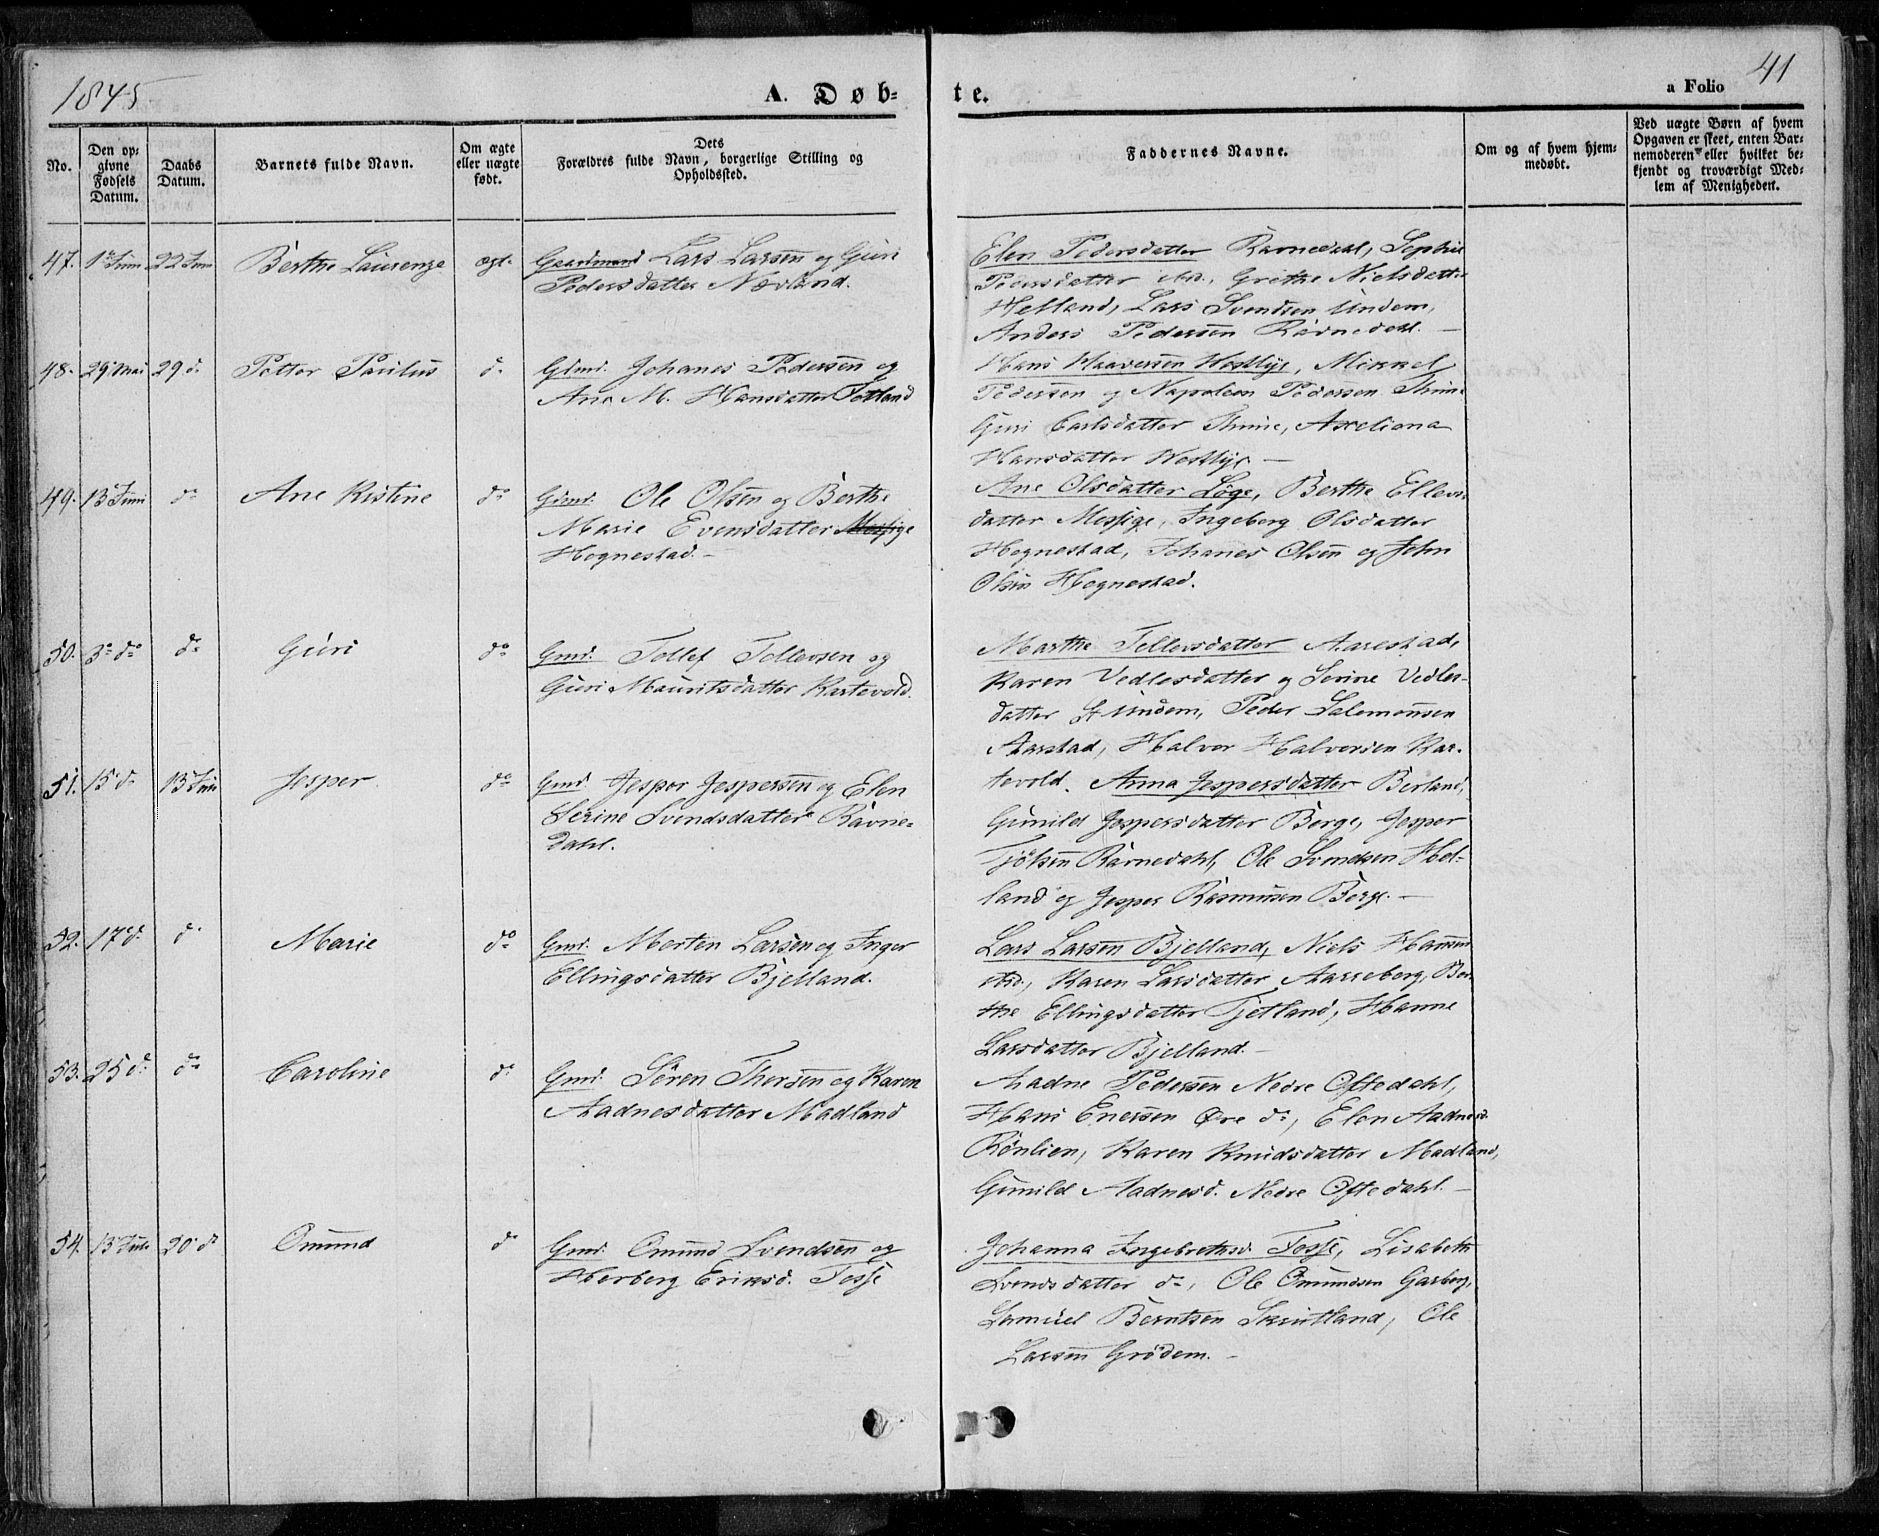 1845
A. Døb-
te.
a Folio 41
No.
Den op-
givne
Fødsels
Datum.
Daabs
Datum.
Barnets fulde Navn.
Om ægte
eller uægte
født.
Dets
Forældres fulde Navn, borgerlige Stilling og
Opholdssted.
Faddernes Navne.
Om og af hvem hjem-
medøbt.
Ved uægte Børn af hvem
Opgaven er skeet, enten Bar-
nemoderen eller hvilket be-
kjendt og troværdigt Med-
lem af Menigheden.
47. 1 Juni 22 Juni Berthe Laurenze ægt. Gaardmand Lars Larsen og Guri
Pedersdatter Nævland.
Elen Pedersdatter Ravnedal, Sophie
Pedersdatter Grethe Nielsdatt.
Helland, Lars Svendsen Undem,
Anders Pedersen Ravnedal.
48. 29 Mai 29 d. Petter Paulus d. Gmd. Johanes Pedersen og
Ane M. Hansdatter Fotland
Hans Haaversen Westlye, Mikkel
Pedersen og Napoleon Pedersen Thime
Guri Carlsdatter Thime, Axeliana
Hansdatter Westlye
49. 13 Juni do Ane Kistine do Gmd. Ole Olsen og Berthe
Marie Evensdatter Mossige
Hognestad.
Ane Olsdatter Løge, Berthe Ellevs
datter Mossige, Ingeborg Olsdatter
Hognestad, Johanes Olsen og John
Olsen Hognestad.
50. 3 do do Guri do Gmd. Tollef Tollevsen og
Guri Mauritsdatter Kartevold.
Marthe Tollevsdatter Aarestad,
Karen Vedlesdatter og Serine Vedles-
datter St Undem, Peder Salomonsen
Aarstad, Halvor Halvorsen Kar-
tevold.
51. 15 d. 13 Jesper do Gmd. Jesper Jespersen og Elen
Serine Svendsdatter Ravne-
dahl.
Anna Jespersdatter Berland,
Gunild Jespersdatter Berge, Jesper
Tjølsen Ravnedahl, Ole Svendsen Hel-
land og Jesper Rasmusen Berge.
52. 17 d. d. Marie do Gmd. Morten Larsen og Inger
Ellingsdatter Bjelland.
Lars Larsen Bjelland, Niels Hansen
Karen Larsdatter Aarreberg, Ber-
the Ellingsdatter Tjetland, Hanne
Larsdatter Bjelland.
53. 25 d. do Caroline d. Gmd. Søren Thorsen og Karen
Aadnesdatter Madland
Aadne Pedersen Nedre Oftedahl,
Hans Enersen Øvre do, Elen Aadnesd.
Rønlien, Karen Knudsdatter Madland,
Gunild Aadnesd. Nedre Oftedahl.
54. 13 Juli 20 d. Omund d. Gmd. Omund Svendsen og
Herborg Eriksd. Fosse
Johanna Ingebrethsd. Fosse, Lisabeth
Svendsdatter do, Ole Omundsen Garborg,
Samuel Berntsen Skrutland, Ole
Larsen Grødem.